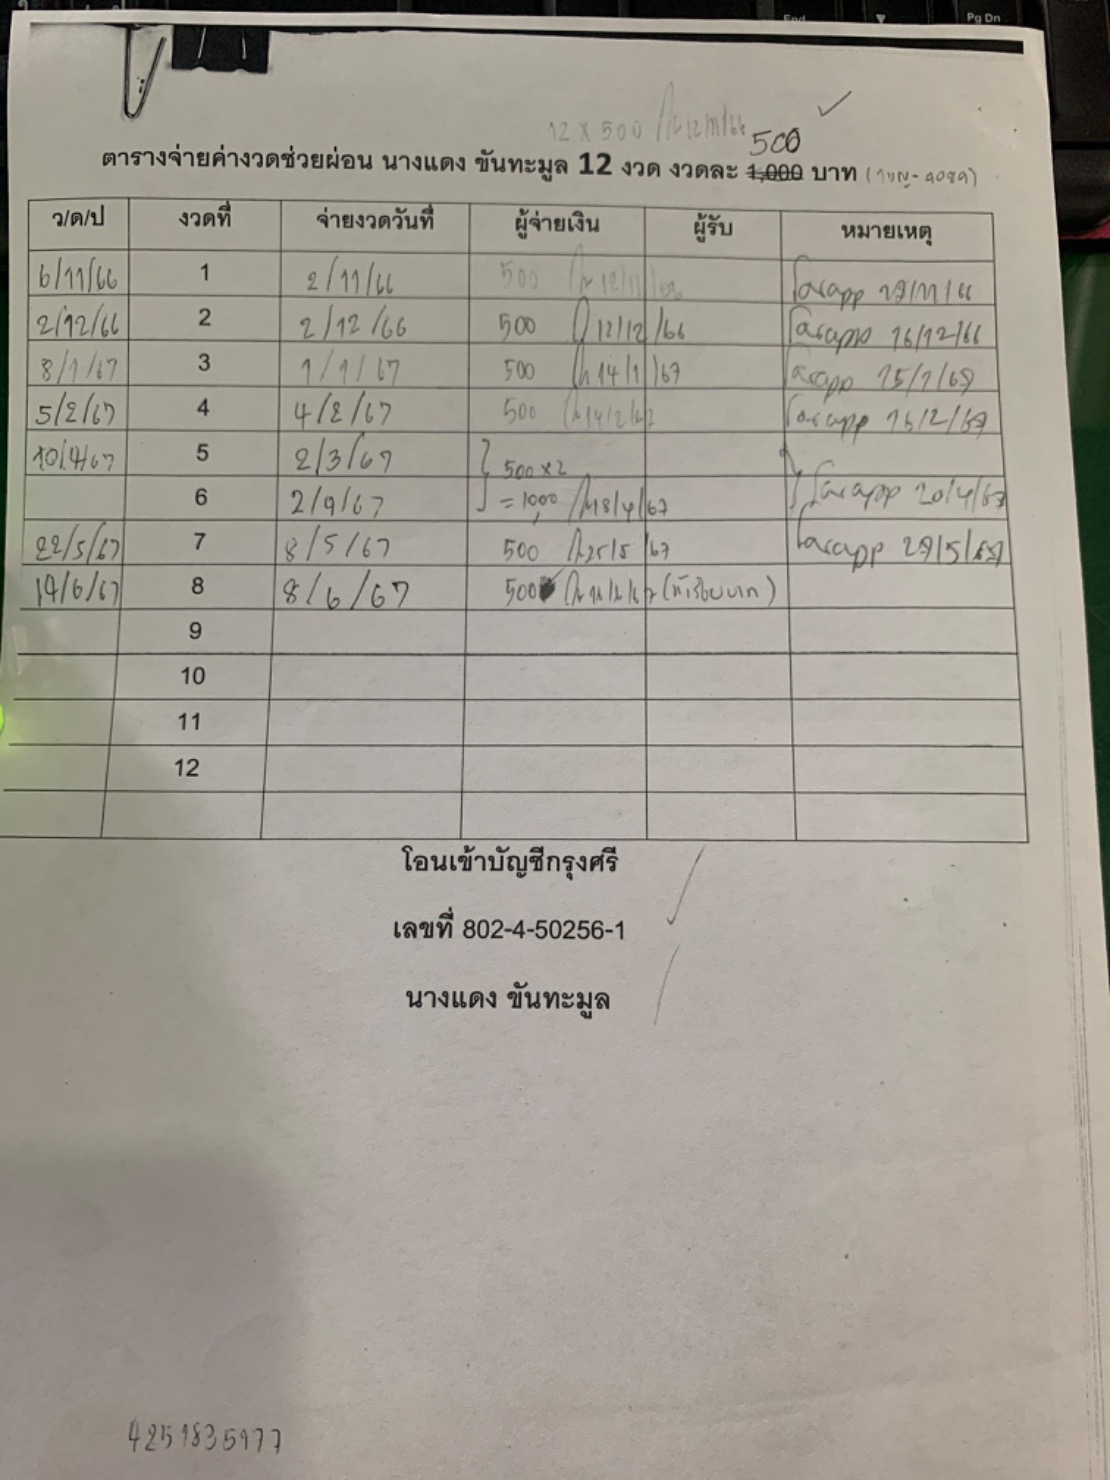 End
Pg Dn
12 x 500 12/11/66
500
ตารางจ่ายค่างวดช่วยผ่อน นางแดง ขันทะมูล 12 งวด งวดละ 1,000 บาท
ว/ด/ป งวดที่ จ่ายงวดวันที่ ผู้จ่ายเงิน ผู้รับ หมายเหตุ
6/11/66 1 2/11/66 500 12/11/66
2/12/66 2 2/12/66 500 12/12/66 16/12/66
8/1/67 3 1/1/67 500 14/1/67 15/1/67
5/2/67 4 4/2/67 500 14/2/67 16/2/67
5 2/3/67 500 x 2
6 = 1,000 18/4/67 20/4/67
22/5/67 7 8/5/67 500 25/5/67
14/6/67 8 8/6/67 500 (ห้าร้อยบาท)
9
10
11
12
โอนเข้าบัญชีกรุงศรี
เลขที่ 802-4-50256-1
นางแดง ขันทะมูล